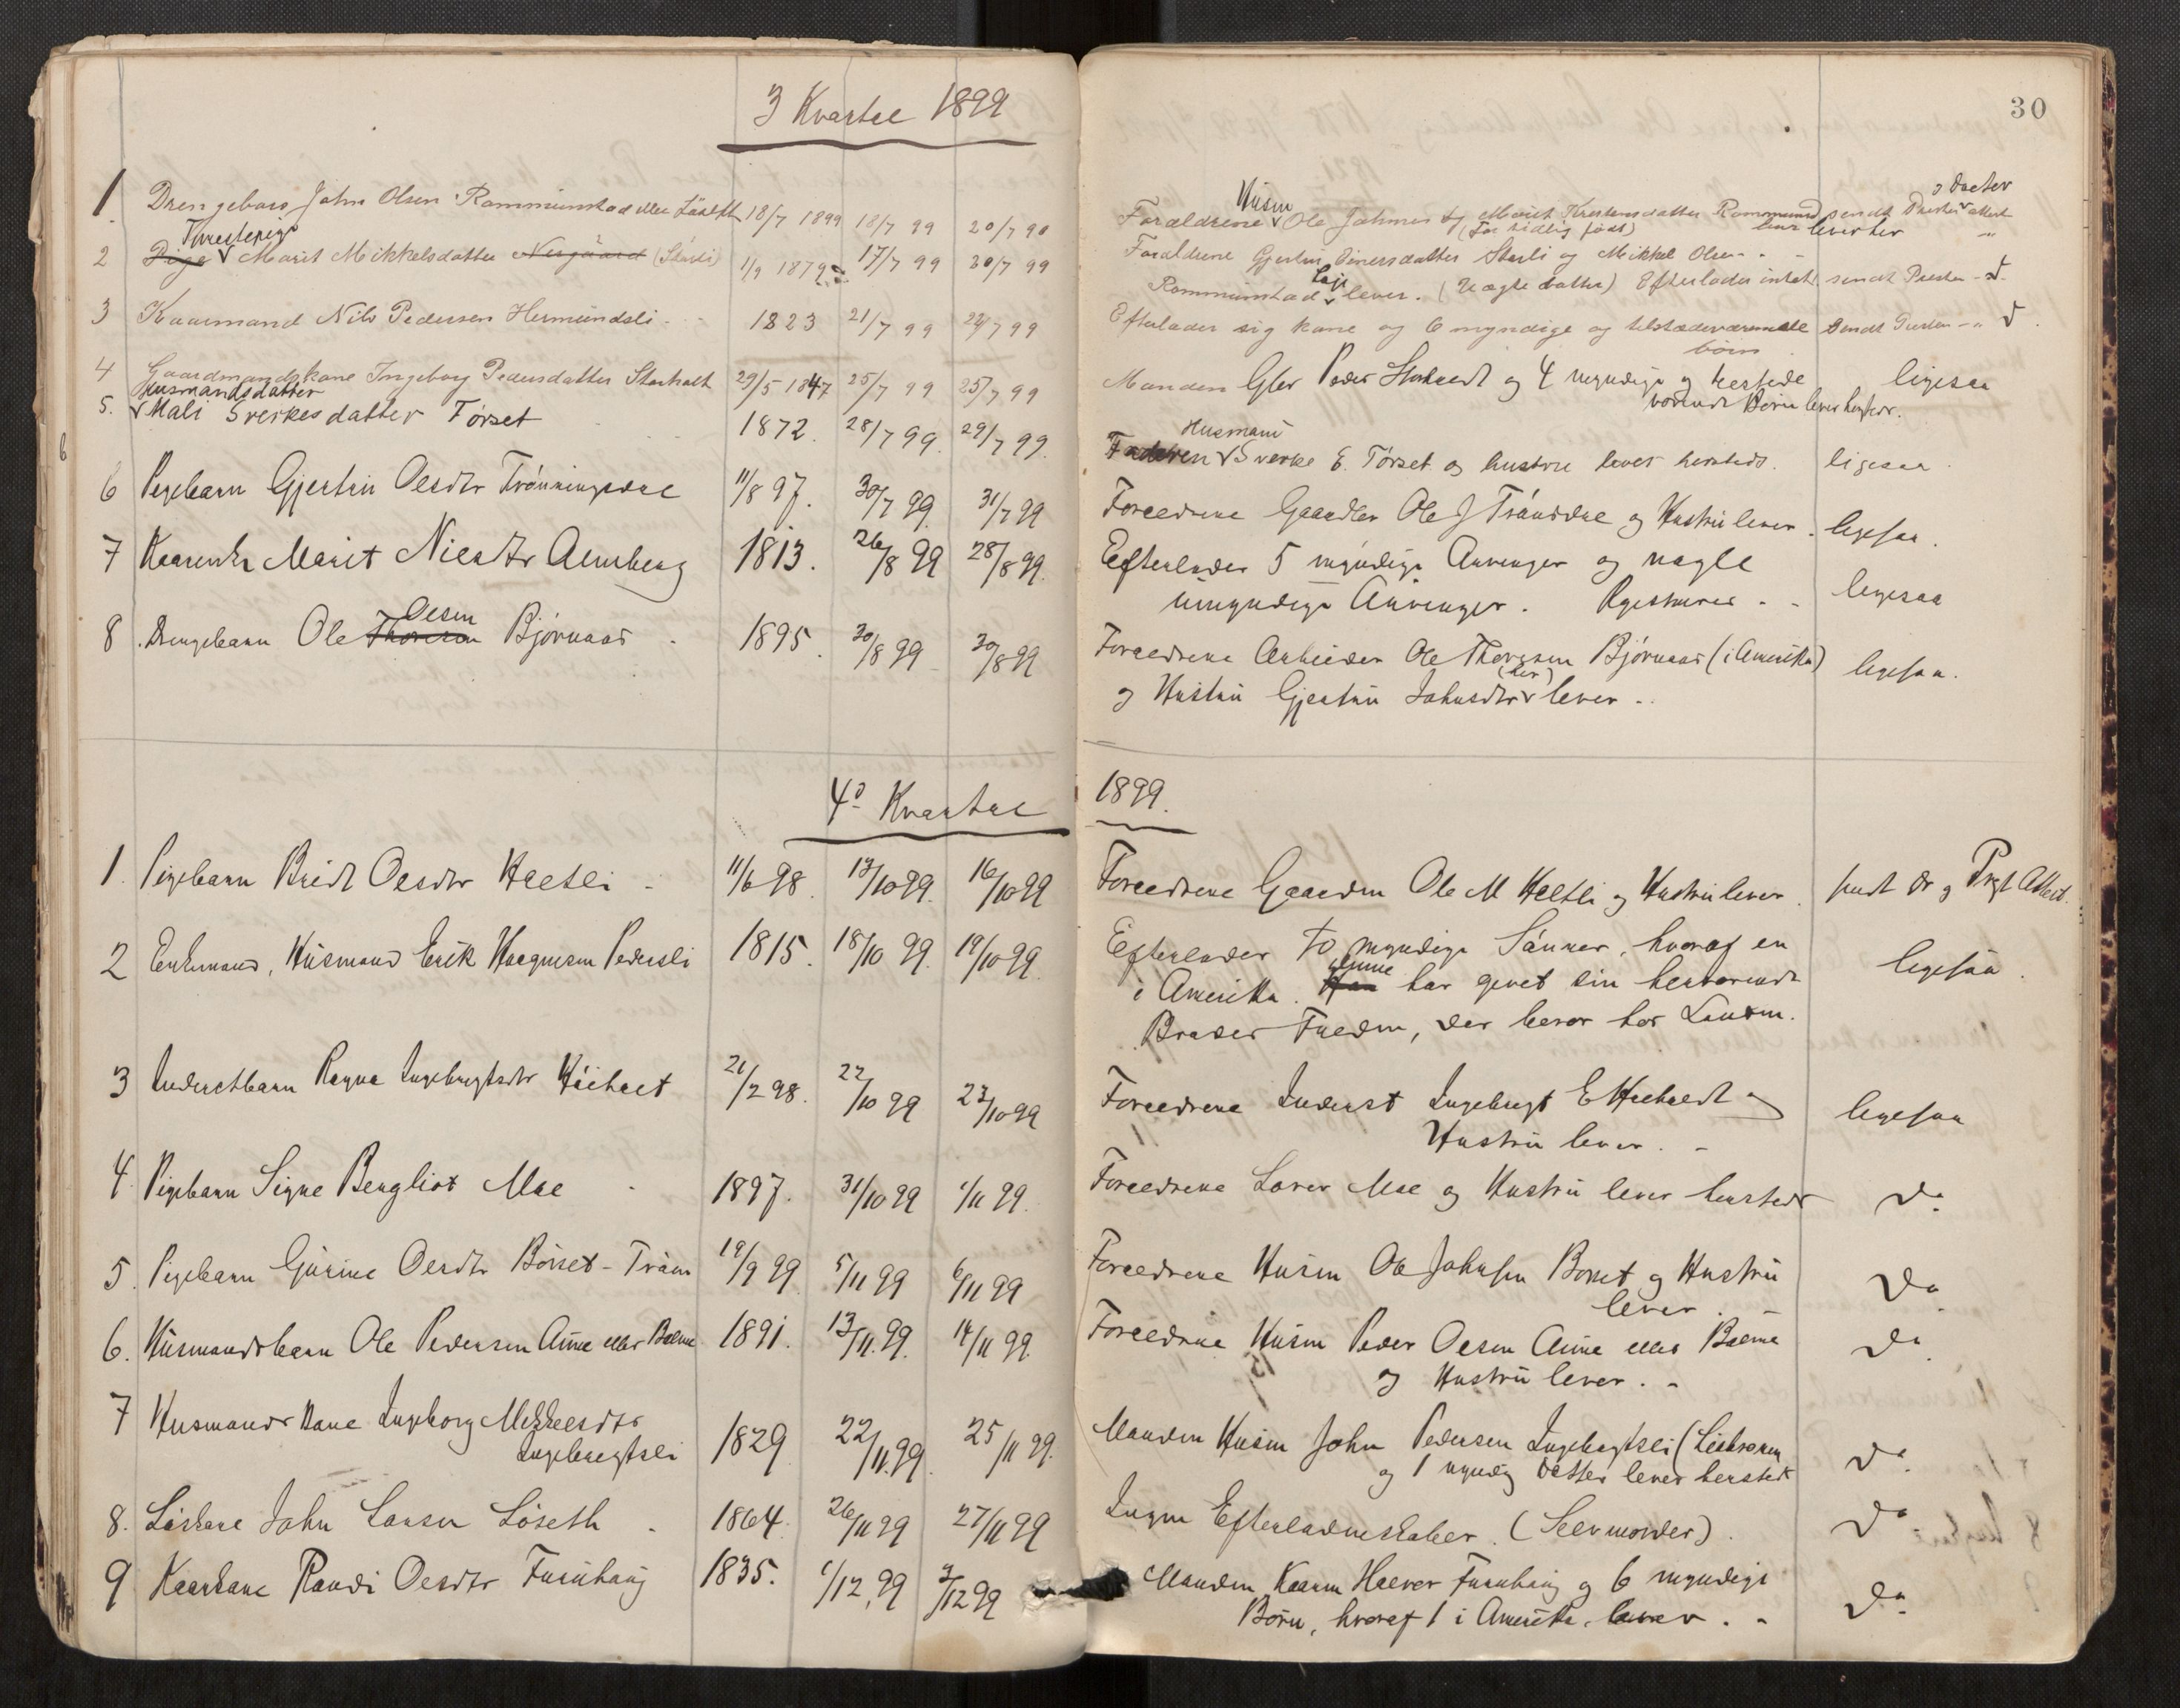 30
3 Kvartal 1899
1. Drengebarn John Olsen Rommunstad eller Løseth 18/7 1899 18/7 99 20/7 99 Forældrene Husm Ole Johnsen og Marit Kirstensdatter Rommunstad sendt Doctor
(for tidlig født) lever her
Tjenestepige
2 Pige Marit Mikkelsdatter Nergaard (Starli) 1/9 1879 17/7 99 20/7 99 Forældrene Gjertru Einersdatter Starli og Mikkel Olsen
Rommunstad lever. (Uægte datter) Efterlader intet. sendt Presten
3 Kaarmand Nils Pedersen Hermundsli 1823 21/7 99 22/7 99 Efterlader sig kone og 6 myndige og tilstedeværende sendt
børn
4 Gaardmandskone Ingeborg Pedersdatter Storholt 29/5 1847 25/7 99 25/7 99 Manden Gbr Peder Storholt og 4 myndige og herstede ligesaa
værende Børn lever
Husmandsdatter
5. Mali Sverkesdatter Tørset 1872. 28/7 99. 29/7 99. Faderen Husmand Sverke E. Tørset og hustru lever hersteds. ligesaa
6 Pigebarn Gjertru Olsdtr Trønningsdal 11/8 97. 30/7 99 31/7 99 Forældrene Gaardbr Ole J Trøndal og Hustru lever. ligesaa.
7 Kaarenke Marit Nilsdtr Almberg 1813. 26/8 99 28/8 99. Efterlader 5 myndige Arvinger og nogle
umyndige Arvinger. Registreres ligesaa
8. Drengebarn Ole Thoresen Olsen Bjørnaas 1895. 30/8 99 30/8 99 Forældrene Arbeider Ole Thoresen Bjørnaas (i Amerika) ligesaa.
og Hustru Gjertru Johnsdtr (her) lever
4de Kvartal 1899.
1. Pigebarn Bridt Olsdtr Hæltli 11/6 98. 13/10 99. 16/10 99 Forældrene Gaardm Ole M Hæltli og Hustru lever. sendt
2 Enkemand, Husmand Erik Haagensen Pedersli 1815. 18/10 99. 19/10 99. Efterlader to myndige Sønner, hvoraf en ligesaa.
i Amerika. Han denne har givet sin herværende
Broder Fuldm, der beror hos Lensm.
3 Inderstbarn Ragna Ingebrigtsdtr 21/2 98. 22/10 99 23/10 99 Forældrene Inderst Ingebrigt E og ligesaa
Hustru lever.
4. Pigebarn Signe Bergliot Moe 1897. 31/10 99 1/11 99. Forældrene Lærer Moe og Hustru lever hersteds Do.
5. Pigebarn Gurine Olsdtr Børset-Trøen 19/9 99 5/11 99 6/11 99 Forældrene Husm Ole Johnsen Børset og Hustru Do
lever.
6. Husmandsbarn Ole Pedersen Aune eller Bolme 1891. 13/11.99. 14/11 99. Forældrene Husm Peder Olsen Aune eller Bolme Do
og Hustru lever.
7 Husmands Kone Ingeborg Mikkelsdtr
Ingebrigtsli 1829 22/11.99. 25/11 99. Manden Husm John Pedersen Ingebrigtsli
og 1 myndig datter lever hersteds Do.
8. Løskarl John Larsen Løseth 1864. 26/11 99 27/11 99 Ingen Efterladenskaber. (Selvmorder). Do
9 Kaarkone Randi Olsdtr Furuhaug 1835. 1/12.99 3/12 99 Manden Kaarm Halvor Furuhaug og 6 myndige
Børn, hvoraf 1 i Amerika, lever. Do